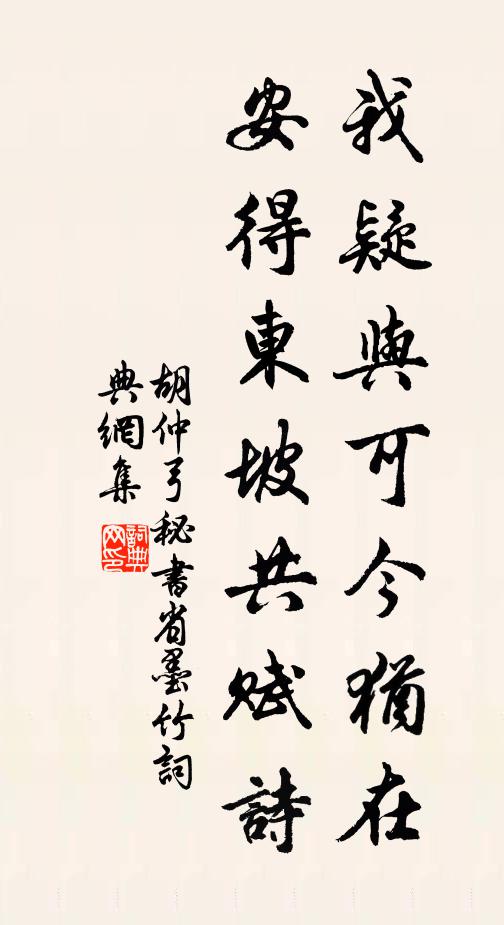 我疑與可今猶在
安得東坡共賦詩
胡仲弓秘書省墨竹詞
典網集
詞典
网印